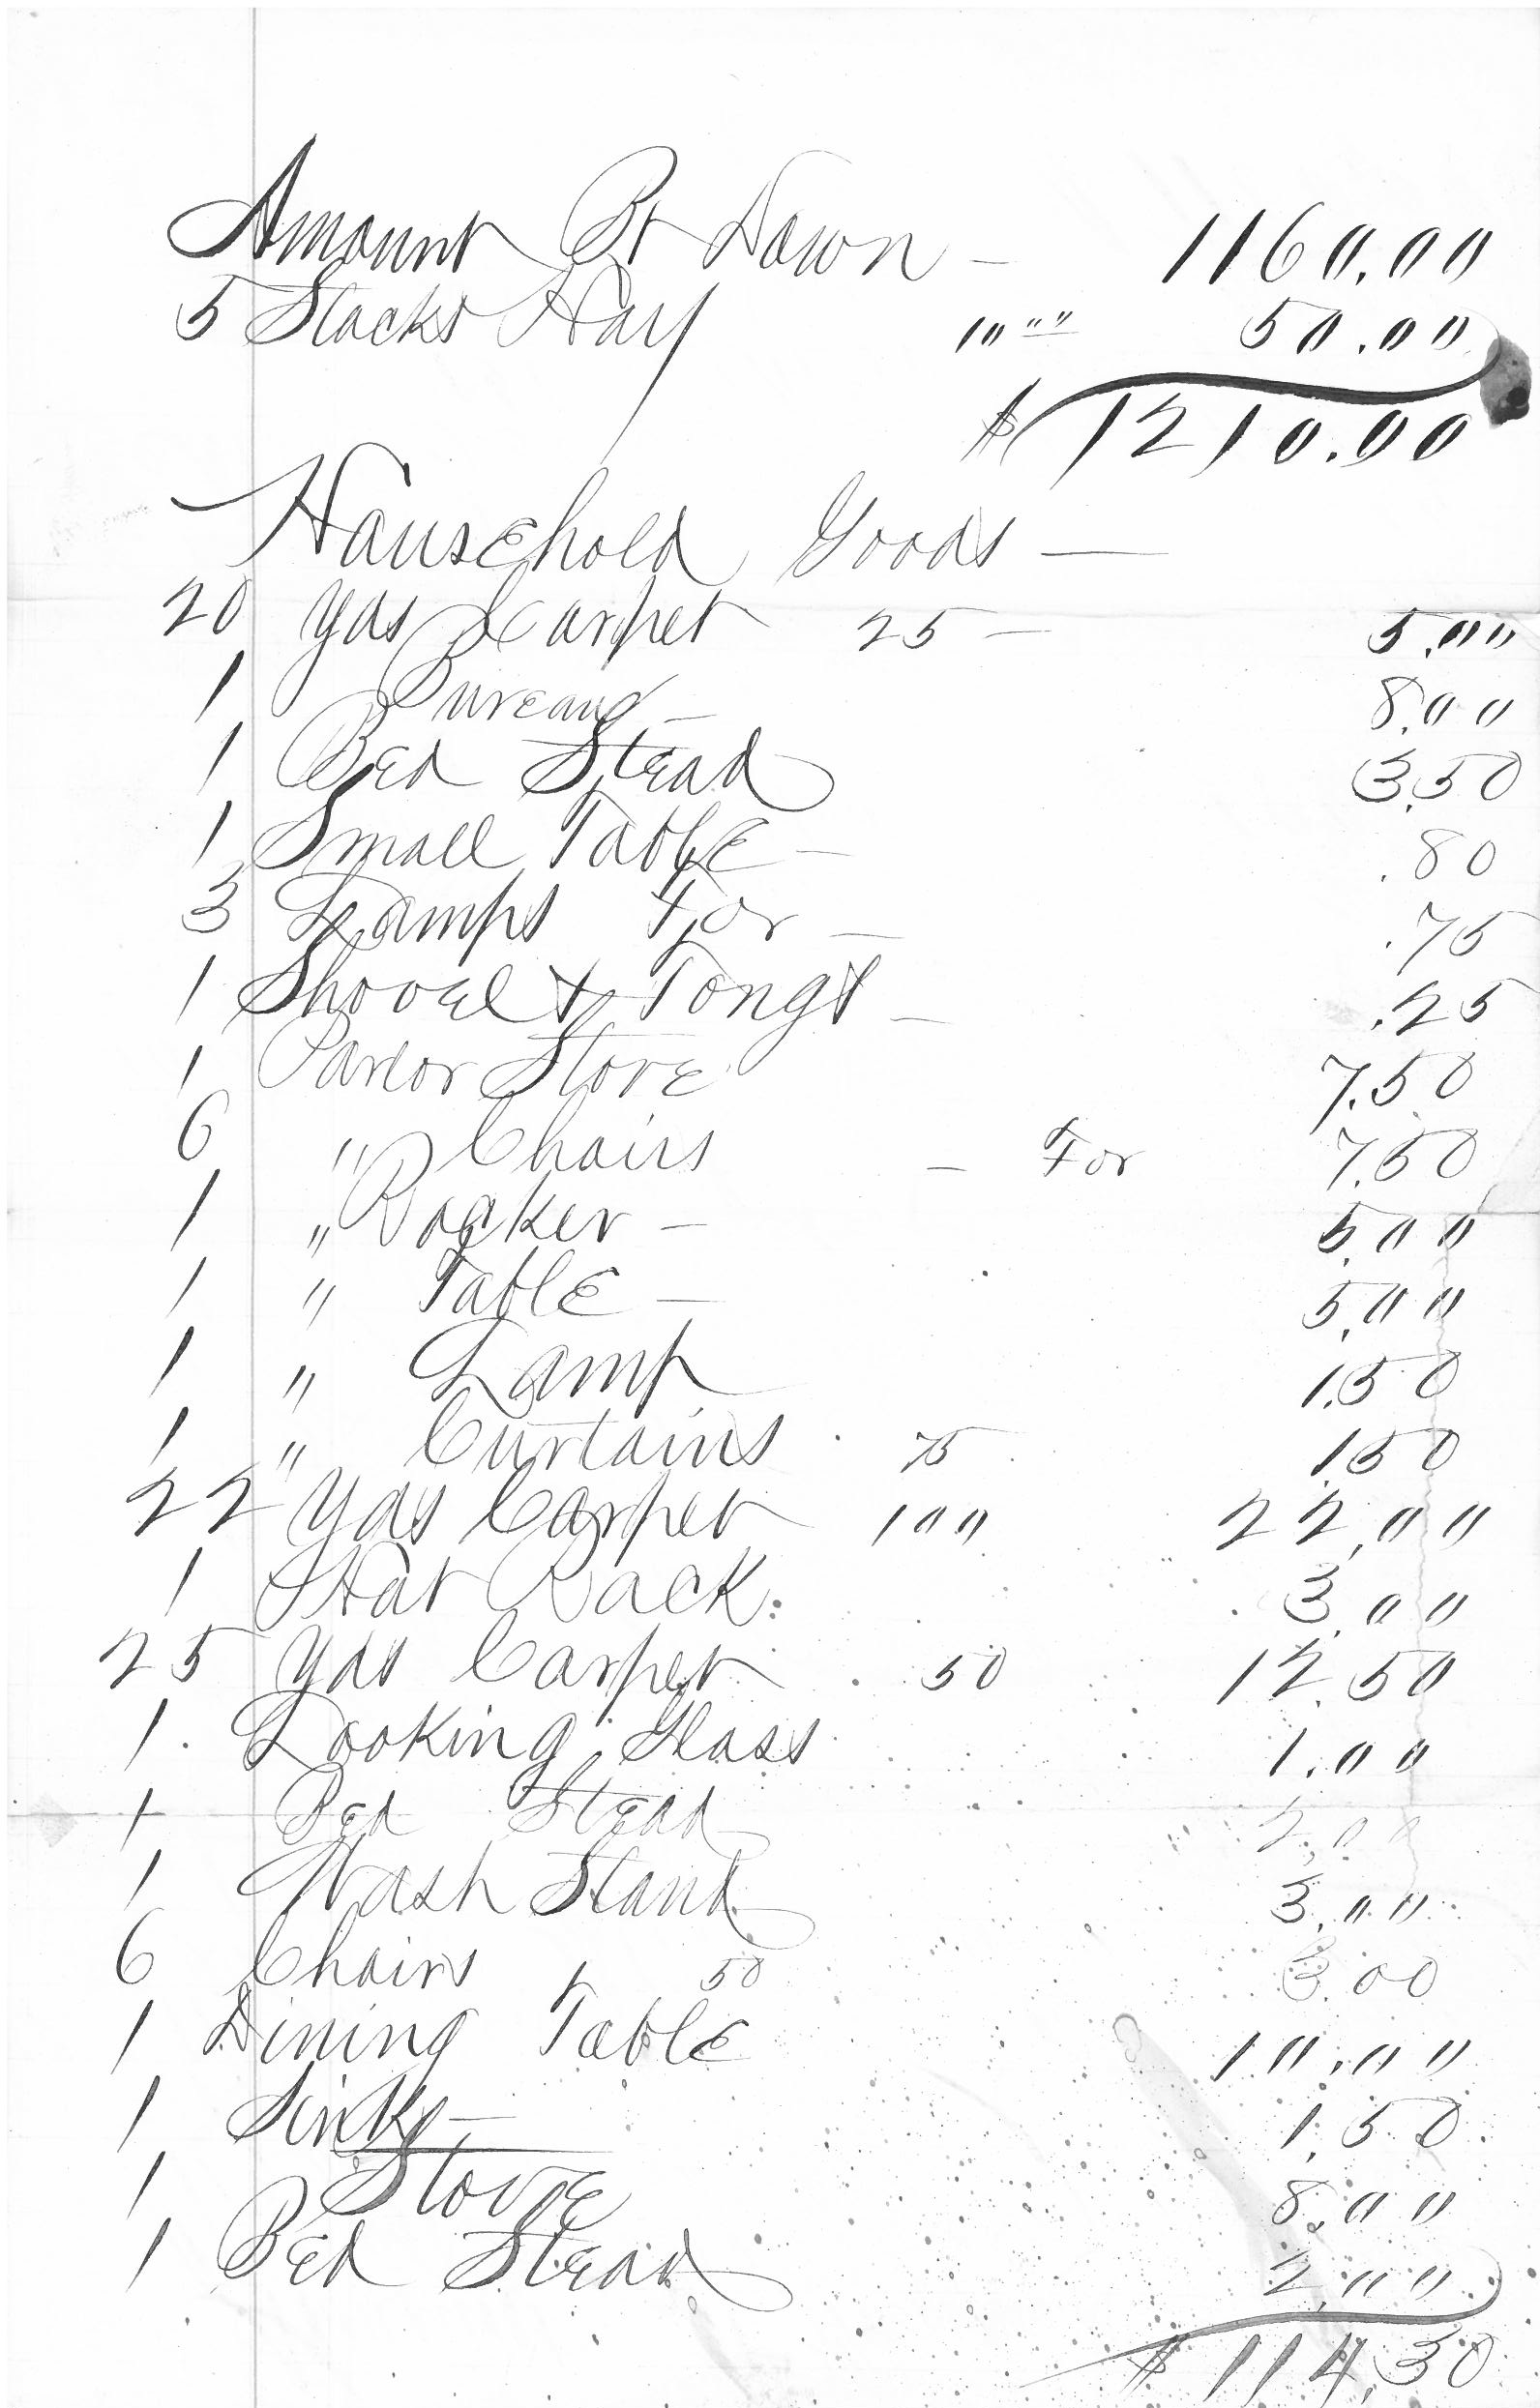 Amount Bt Down — 1160.00
5 Stacks Hay 10.00 50.00
$ 1210.00
Household Goods —
20 Yds Carpet 25 — 5.00
1 Bureau — 8.00
1 Bed Stead 3.50
1 Small Table — .80
3 Lamps For — .75
1 Shovel & Tongs — .25
1 Parlor Stove 7.50
6 " Chairs — For 7.50
1 " Rocker — 5.00
1 " Table — 5.00
1 " Lamp 1.50
1 " Curtains 75 1.50
22 Yds Carpet 100 22.00
1 Hat Rack 3.00
25 Yds Carpet 50 12.50
1 Looking Glass 1.00
1 Bed Stead 2.00
1 Wash Stand 3.00
6 Chairs 50 3.00
1 Dining Table 10.00
1 Sink — 1.50
1 Stove 8.00
1 Bed Stead 2.00
$ 114.30